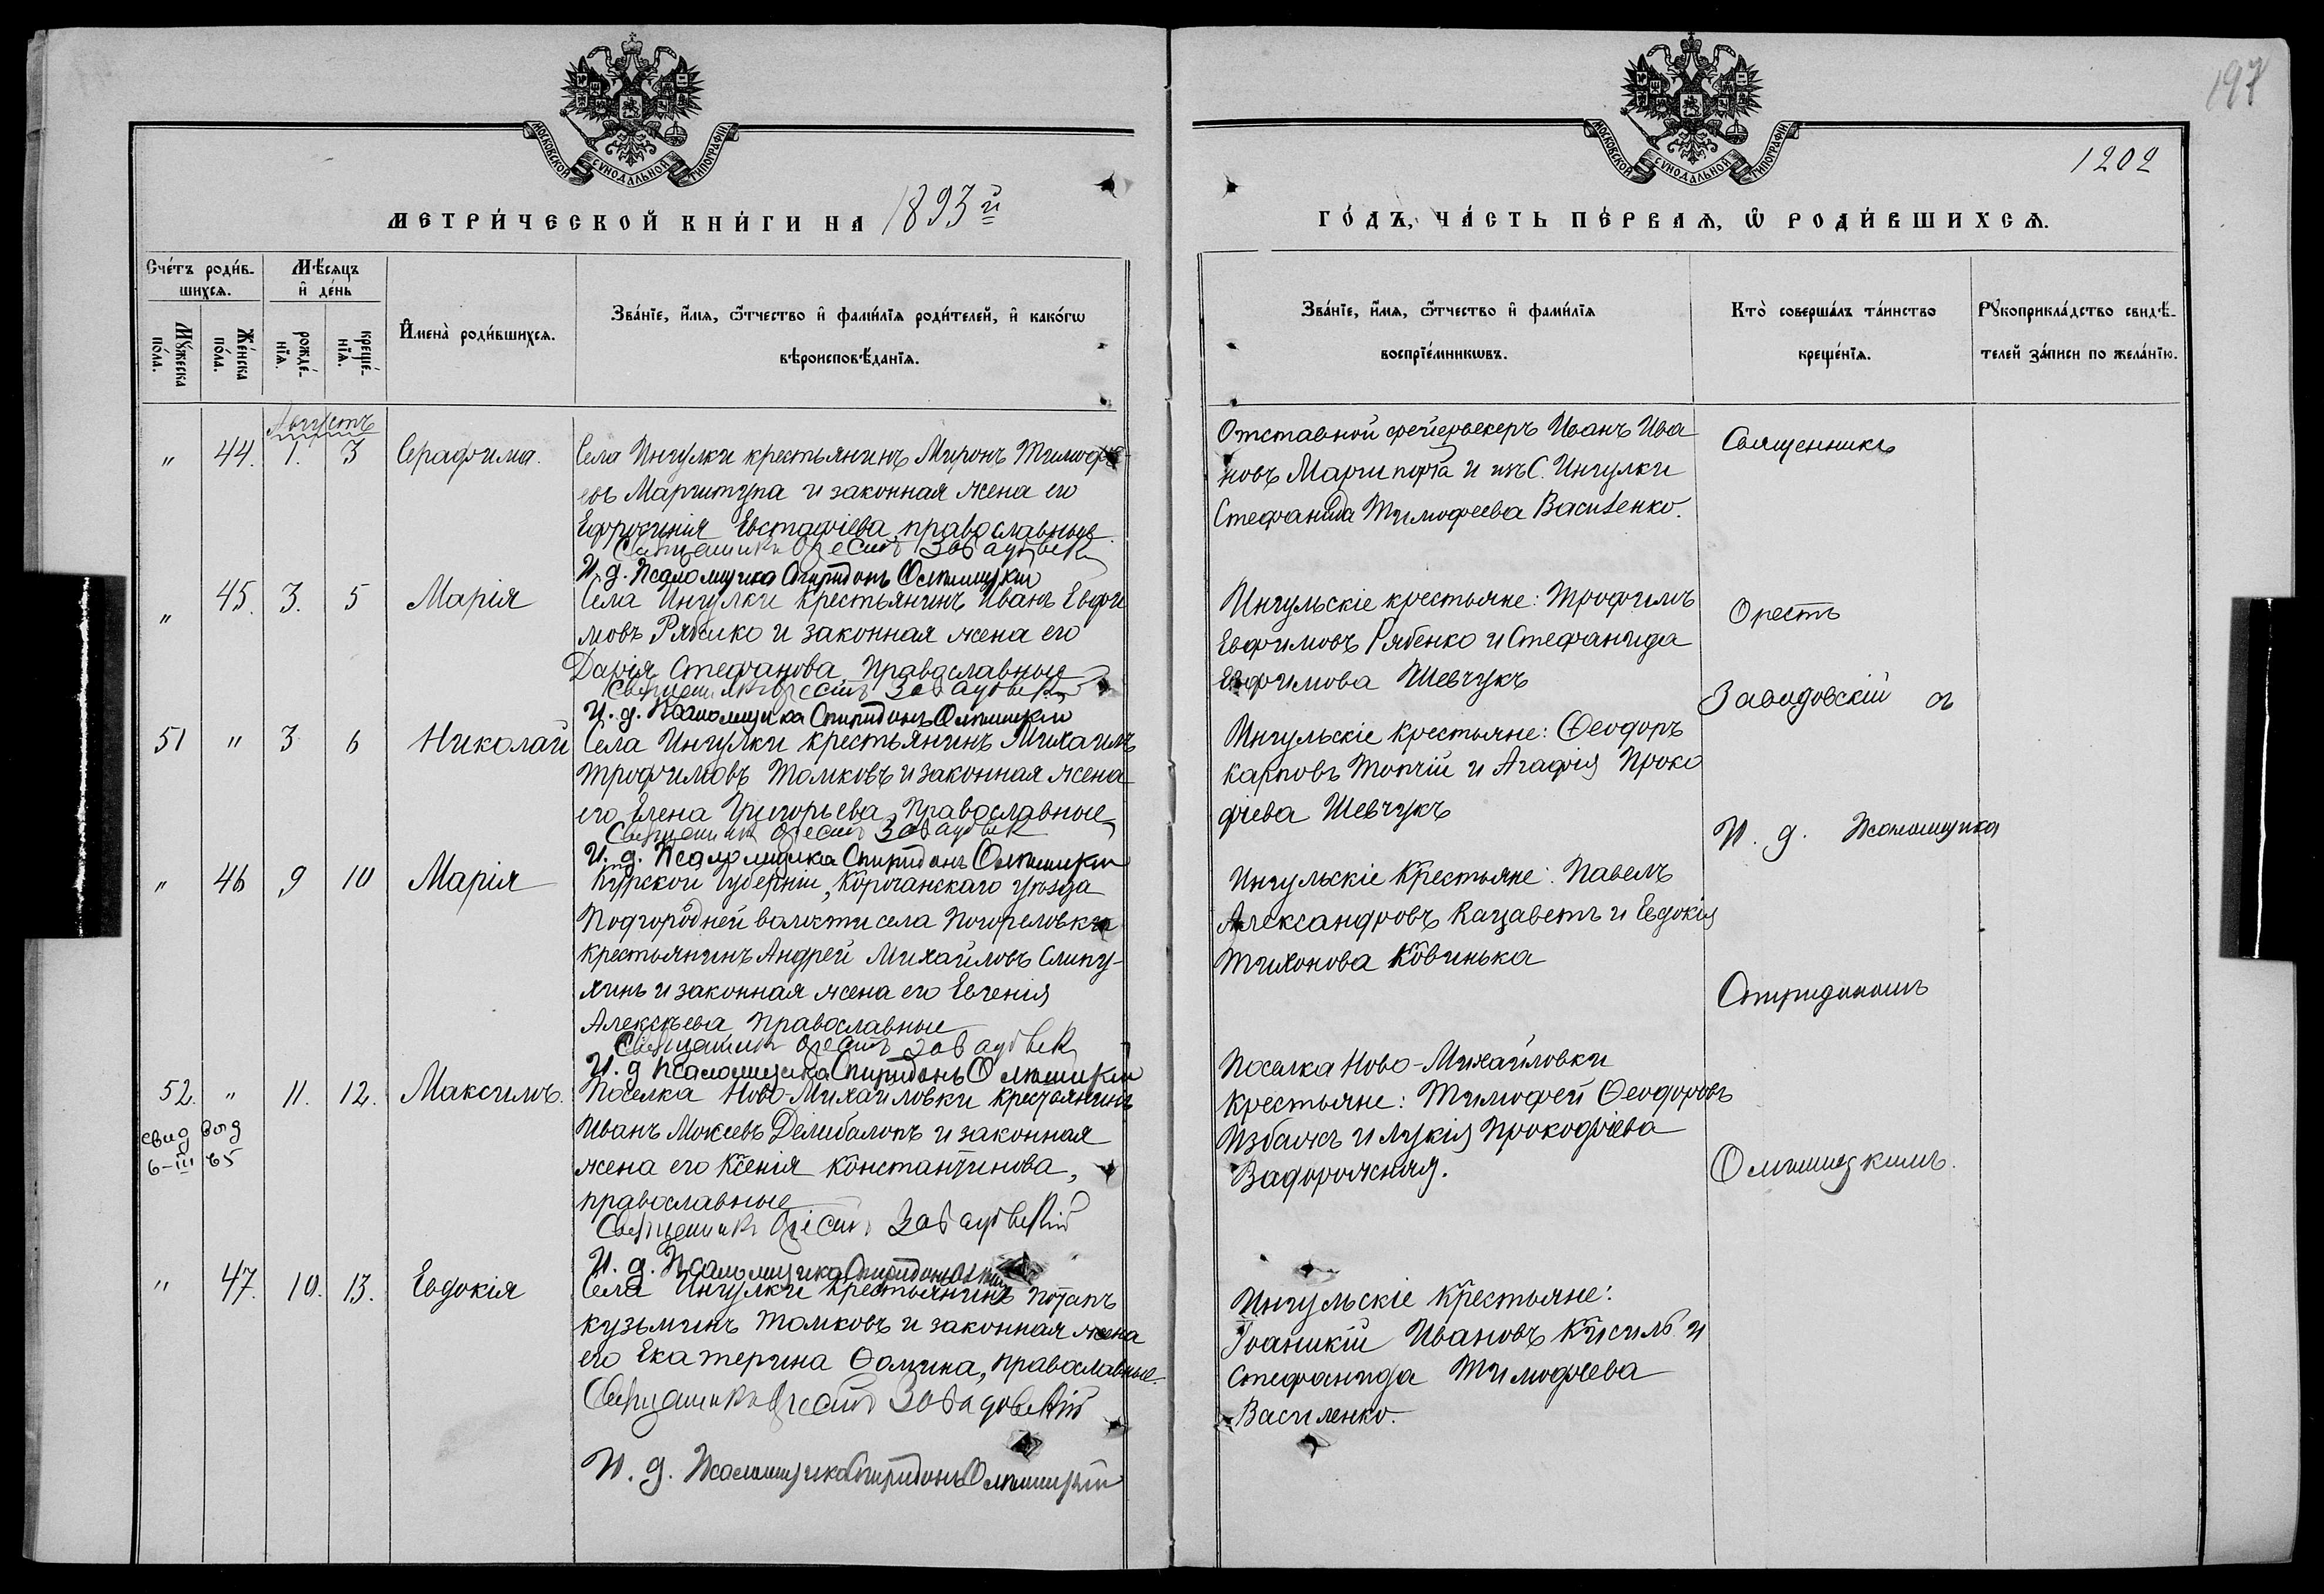 197
1202
МОСКОВСКОЙ СѴНОДАЛЬНОЙ ТИПОГРАФІИ
МОСКОВСКОЙ СѴНОДАЛЬНОЙ ТИПОГРАФІИ
МЕТРИ́ЧЕСКОЙ КНИ́ГИ НА 1893й
ГО́ДЪ, ЧА́СТЬ ПЕ́РВАѦ, Ѿ РОДИ́ВШИХСѦ.
Сче́тъ роди́в-
шихсѧ.
Мѣ́сѧцъ
и҆ де́нь
Мꙋ́жеска
по́ла.
Же́нска
по́ла.
рожде́-
нїѧ.
креще́-
нїѧ.
И҆мена̀ роди́вшихсѧ.
Зва́нїе, и҆́мѧ, ѻ҆́тчество и҆ фами́лїѧ роди́телей, и҆ како́гѡ
вѣроисповѣ́данїѧ.
Зва́нїе, и҆́мѧ, ѻ҆́тчество и҆ фами́лїѧ
воспрїе́мникѡвъ.
Кто̀ соверша́лъ та́инство
креще́нїѧ.
Рꙋкоприкла́дство свидѣ́-
телей за́писи по жела́нїю.
Августъ
" 44. 1. 3 Серафима.
Села Ингулки крестьянинъ Миронъ Тимофе
евъ Маргитупа и законная жена его
Ефросинія Евстафіева, православные
Священникъ Орестъ Завадовск
И. д. Псаломщика Спиридонъ Олтшицкій
Отставной фейерверкеръ Иванъ Ива
новъ Марти порта и изъ С. Ингулки
Стефанида Тимофеева Василенко.
Священникъ
" 45. 3. 5 Марія
Села Ингулки крестьянинъ Иванъ Евфи
мовъ Рябенко и законная жена его
Дарія Стефанова, православные
Священникъ Орестъ Завадовск
И. д. Псаломщика Спиридонъ Олтшицкій
Ингульскіе крестьяне: Трофимъ
Евфимовъ Рябенко и Стефанида
Евфимова Шевчукъ
Орестъ
Завадовскій съ
51 " 3 6 Николай
Села Ингулки крестьянинъ Михаилъ
Трофимовъ Томковъ и законная жена
его Елена Григорьева, православные
Священникъ Орестъ Завадовск
И. д. Псаломщика Спиридонъ Олтшицкій
Ингульскіе крестьяне: Ѳеодоръ
Карповъ Топчій и Агафія Проко
фіева Шевчукъ
И. д. Псаломщика
" 46 9 10 Марія
Курской Губерніи, Корочанскаго уѣзда
Подгородней волости села Погореловки
крестьянинъ Андрей Михайловъ Слипу-
хинъ и законная жена его Евгенія
Алексѣева, православные
Священникъ Орестъ Завадовск
И. д Псаломщика Спиридонъ Олтшицкій
Ингульскіе Крестьяне: Павелъ
Александровъ Кацаветъ и Евдокія
Тихонова Ковинька
Спиридономъ
52. " 11. 12. Максимъ.
свид выд
6-III 65
Поселка Ново-Михайловки крестьянинъ
Иванъ Мокеевъ Делибалопъ и законная
жена его Ксенія Константинова,
православные
Священникъ Орестъ Завадовскій
И. д. Псаломщика Спиридонъ
Поселка Ново-Михайловки
крестьяне: Тимофей Ѳеодоровъ
Избашъ и Лукія Прокофіева
Задорожняя.
Олтшицкимъ.
" 47. 10. 13. Евдокія
Села Ингулки крестьянинъ Потапъ
Кузьминъ Томковъ и законная жена
его Екатерина Ѳомина, православные.
Священникъ Орестъ Завадовскій
И. д. Псаломщика Спиридонъ Олтшицкій
Ингульскіе крестьяне:
Іоаникій Ивановъ Кисиль и
Стефанида Тимофеева
Василенко.